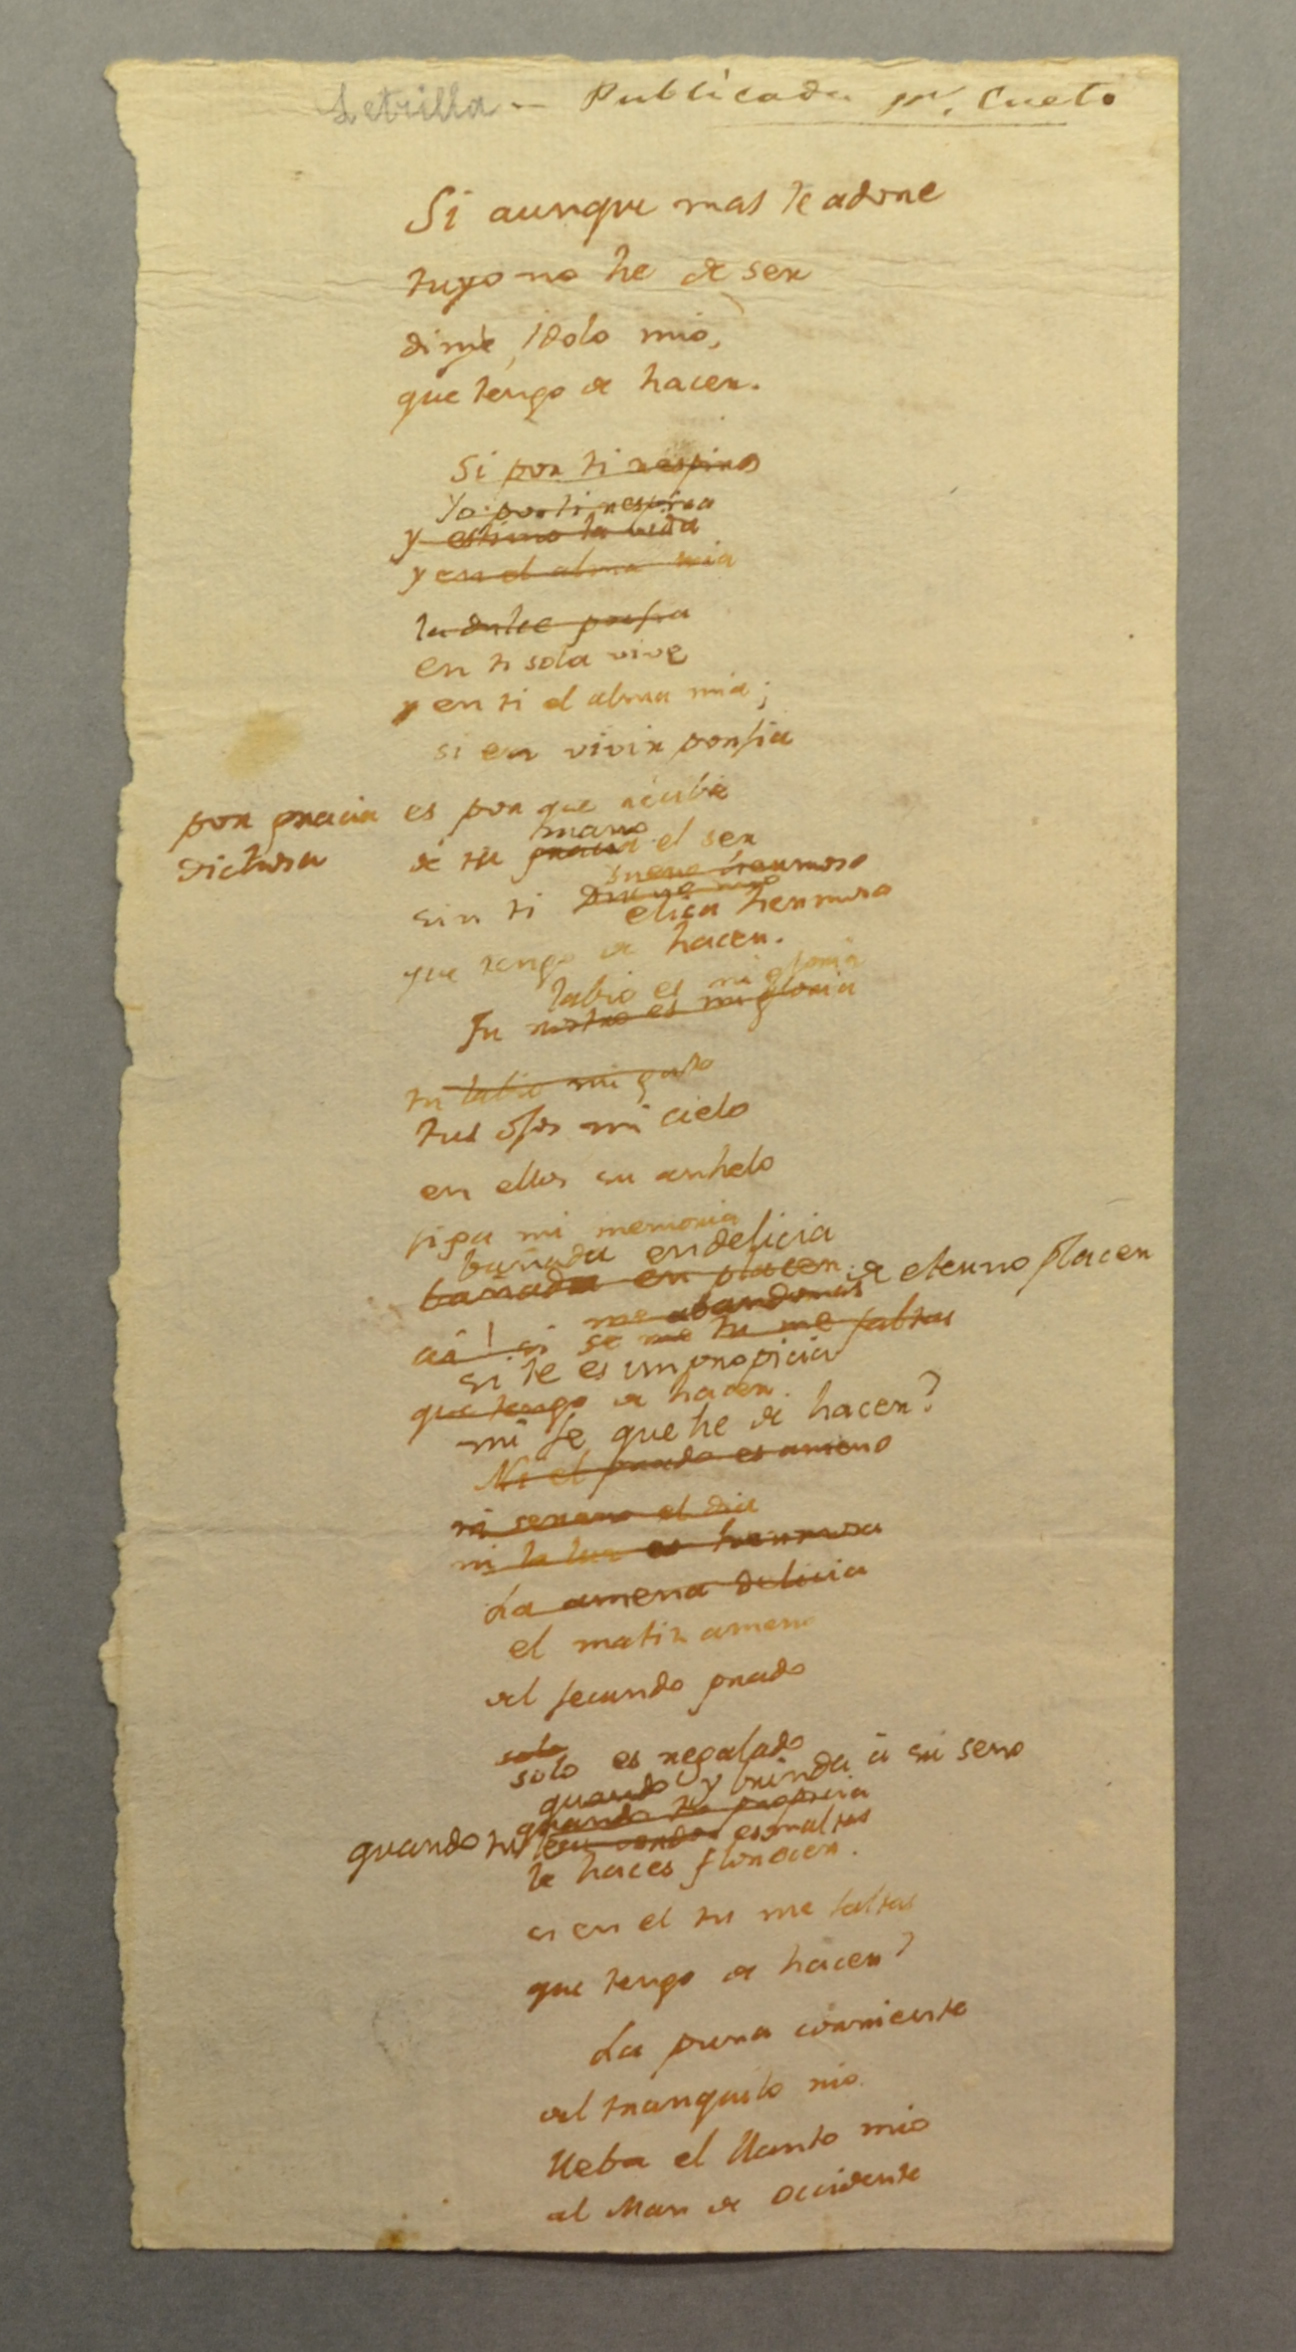 Letrilla — Publicada pr. Cueto
Si aunque mas te adore
tuyo no he de ser
dime, idolo mio,
que tengo de hacer.
Si por ti respiro
Yo por ti respiro
y estimo la vida
y en el alma mia
la dulce porfia
en ti sola vive
y en ti el alma mia;
si en vivir porfia
por gracia es por que recibe
dichosa de tu mano gracia el ser
sueño hermoso
sin ti
elisa hermosa
que tengo de hacer.
labio es mi gloria
Tu rostro es mi gloria
tu labio mi gusto
tus ojos mi cielo
en ellos su anhelo
siga mi memoria
bañada en delicia
bañada en placer. de eterno placer
me abandonas
ai! si se me tu me faltas
si te es impropicia
que tengo de hacer.
mi fe que he de hacer?
Ni el prado es ameno
ni sereno el dia
ni la luz es hermosa
La amena delicia
el matiz ameno
del fecundo prado
solo
solo es regalado
quando y brinda à su seno
quando tu propicia
quando tu esmaltas
le haces florecer.
si en el tu me faltas
que tengo de hacer?
La pura corriente
del tranquilo rio.
lleba el llanto mio
al Mar de Occidente